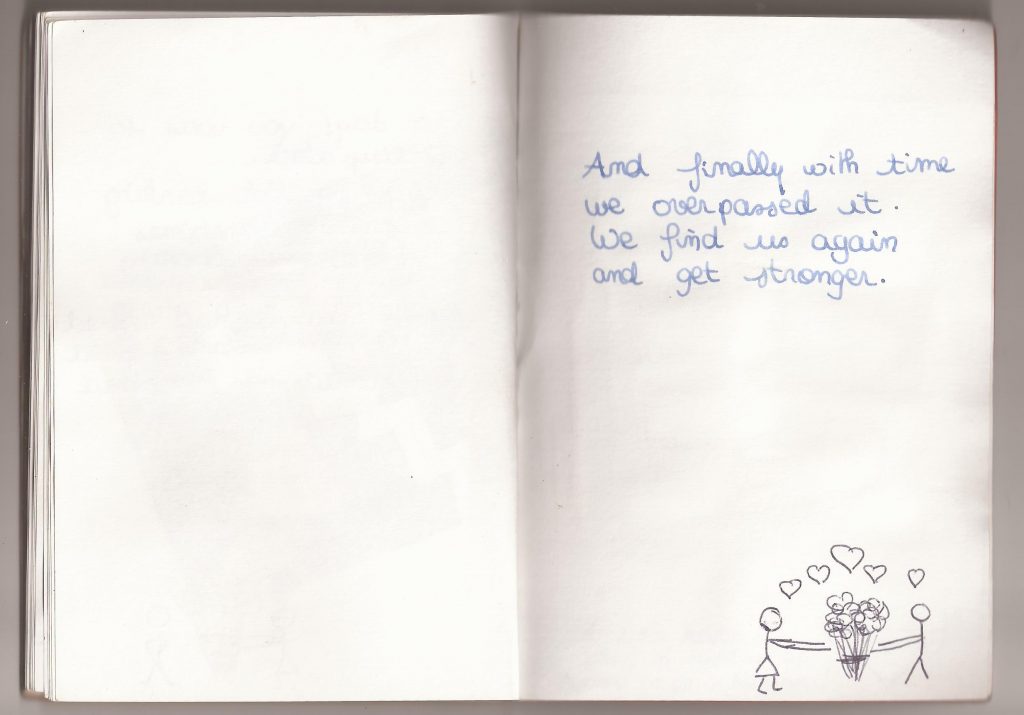 And finally with time
we overpassed it.
We find us again
and get stronger.